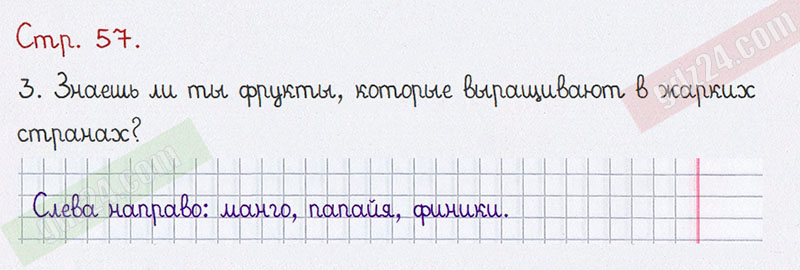 Стр. 57.
3. Знаешь ли ты фрукты, которые выращивают в жарких
странах?
Слева направо: манго, папайя, финики.
gdz24.com
gdz24.com